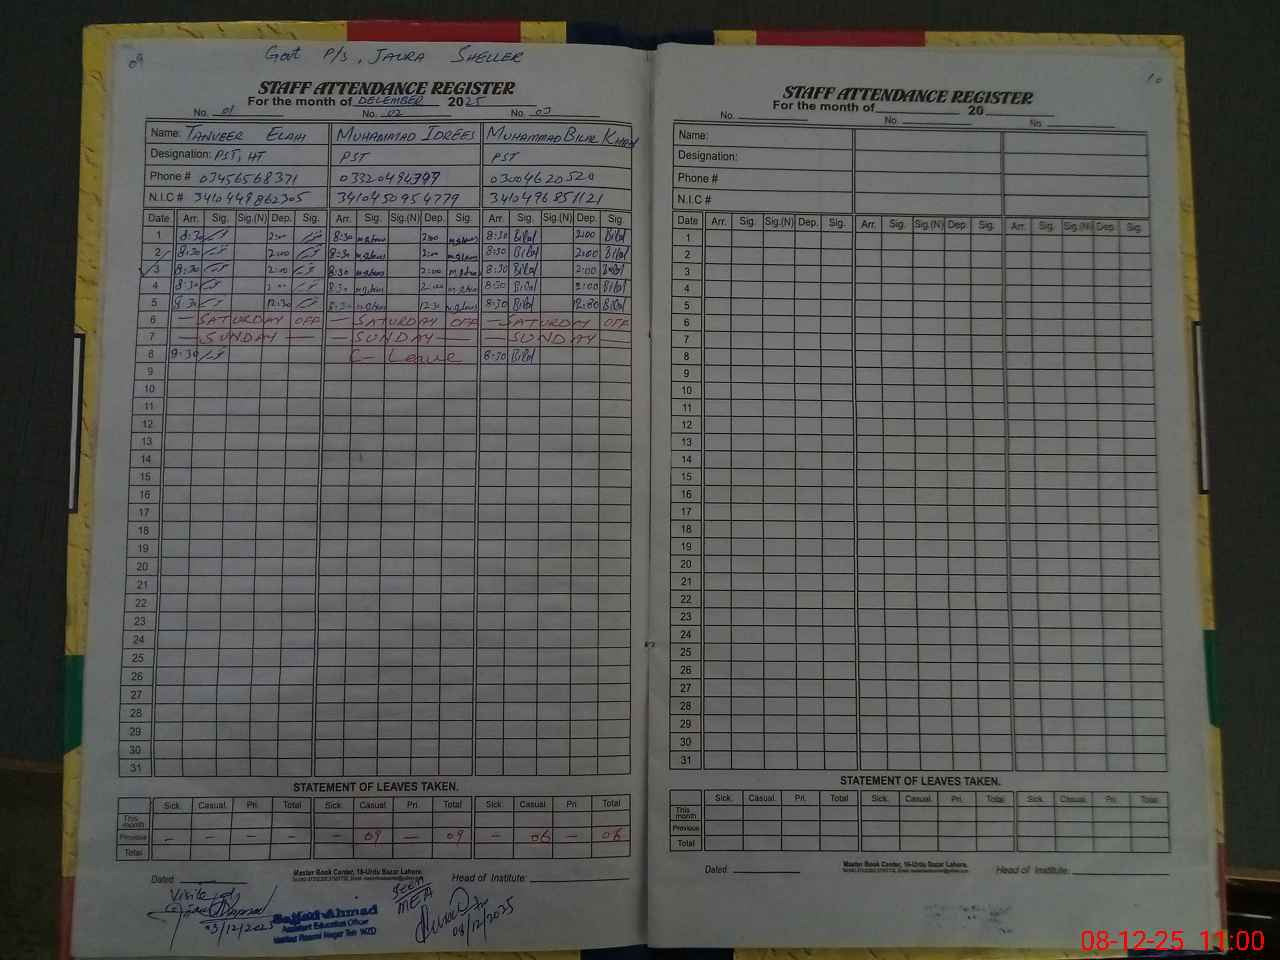 09
Govt P/s, JAURA SHELLER
STAFF ATTENDANCE REGISTER
For the month of DECEMBER 2025
No. 01 No. 02 No. 03
Name: TANVEER ELAHI MUHAMMAD IDREES MUHAMMAD BILAL KHAN
Designation: PST, HT PST PST
Phone # 03456568371 03320494399 03004620520
N.I.C # 3410449862305 3410450954779 3410496851121
Date Arr. Sig. Sig.(N) Dep. Sig. Arr. Sig. Sig.(N) Dep. Sig. Arr. Sig. Sig.(N) Dep. Sig.
1 8:30 2:00 8:30 2:00 8:30 Bilal 2:00 Bilal
2 8:30 2:00 8:30 2:00 8:30 Bilal 2:00 Bilal
3 8:30 2:00 8:30 2:00 8:30 Bilal 2:00 Bilal
4 8:30 2:00 8:30 2:00 8:30 Bilal 2:00 Bilal
5 8:30 12:30 8:30 12:30 8:30 Bilal 12:30 Bilal
6 — SATURDAY OFF — SATURDAY OFF — SATURDAY OFF
7 — SUNDAY — — SUNDAY — — SUNDAY —
8 8:30 C- Leave 8:30 Bilal
9
10
11
12
13
14
15
16
17
18
19
20
21
22
23
24
25
26
27
28
29
30
31
STATEMENT OF LEAVES TAKEN.
Sick. Casual. Pri. Total Sick. Casual. Pri. Total Sick. Casual. Pri. Total
This month
Previous — — — — — 09 — 09 — 06 — 06
Total
Master Book Center, 18-Urdu Bazar Lahore.
Dated Head of Institute:
Visited
03/12/2025
Sajjad Ahmad
Assistant Education Officer
Seen
MEA
08/12/2025
10
STAFF ATTENDANCE REGISTER
For the month of 20
No. No. No.
Name:
Designation:
Phone #
N.I.C #
Date Arr. Sig. Sig.(N) Dep. Sig. Arr. Sig. Sig.(N) Dep. Sig. Arr. Sig. Sig.(N) Dep. Sig.
1
2
3
4
5
6
7
8
9
10
11
12
13
14
15
16
17
18
19
20
21
22
23
24
25
26
27
28
29
30
31
STATEMENT OF LEAVES TAKEN.
Sick. Casual. Pri. Total Sick. Casual. Pri. Total Sick. Casual. Pri. Total
This month
Previous
Total
Master Book Center, 18-Urdu Bazar Lahore.
Dated: Head of Institute:
08-12-25 11:00